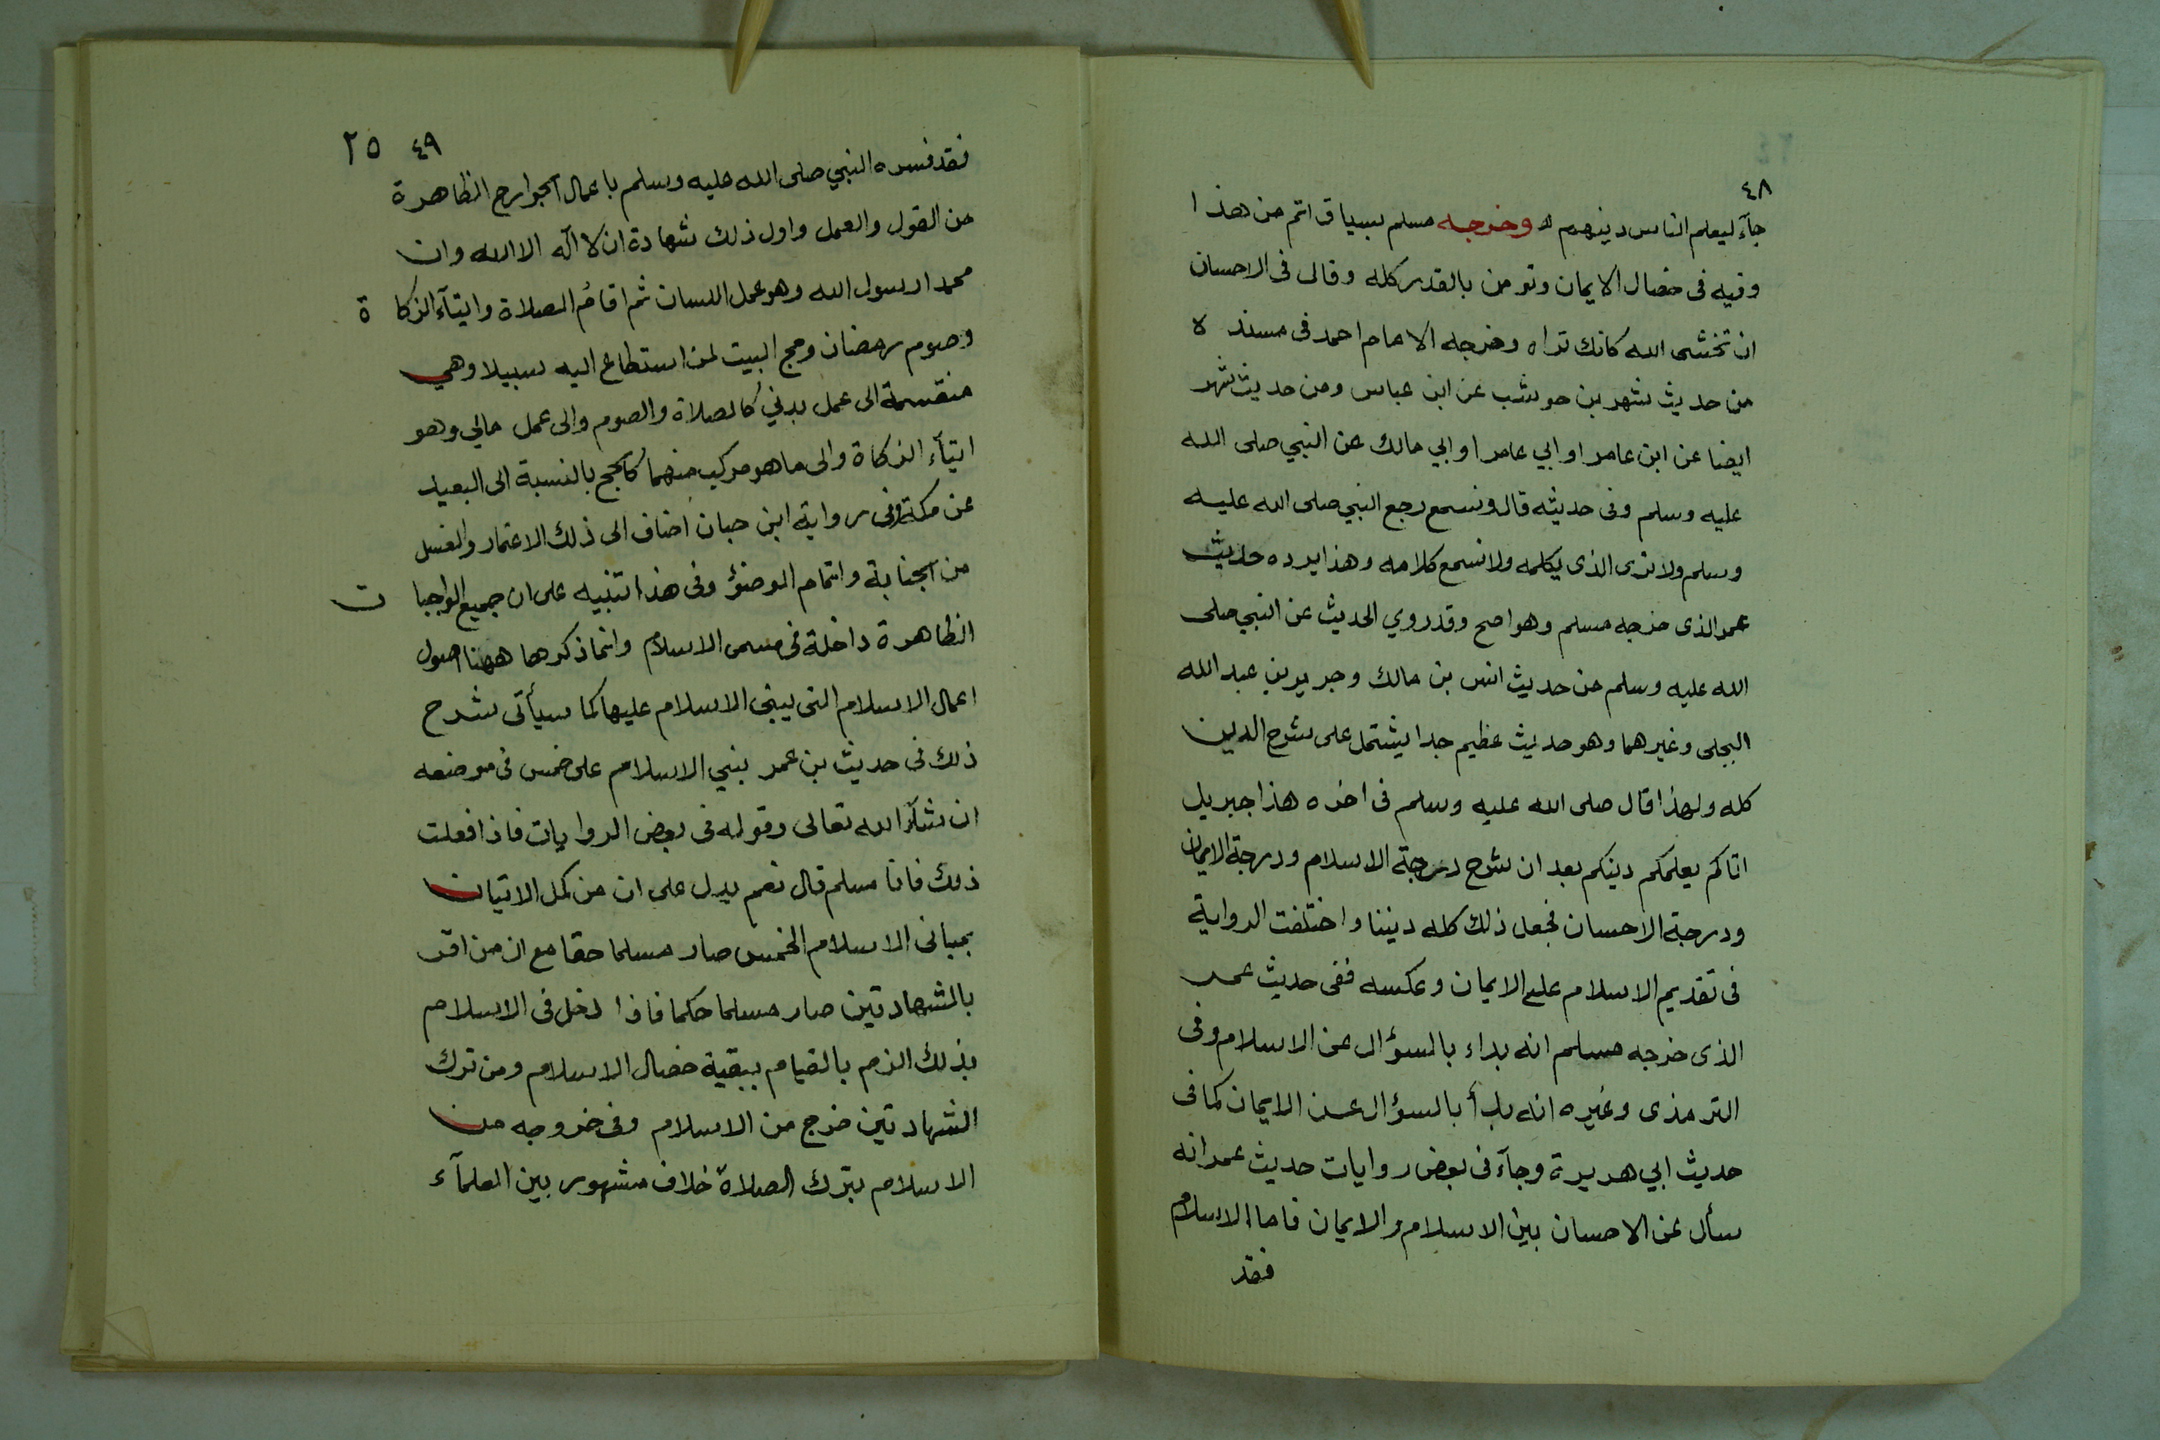 ٤٨
جآء ليعلم الناس دينهم وخرجه مسلم بسياق اتم من هذا
وفيه فى خصال الايمان وتومن بالقدر كله وقال فى الاحسان
ان تخشى الله كانك تراه وخرجه الامام احمد فى مسنده
من حديث شهر بن حوشب عن ابن عباس ومن حديث شهر
ايضا عن ابن عامر او ابي عامر او ابي مالك عن النبي صلى الله
عليه وسلم وفى حديثه قال ونسمع رجع النبي صلى الله عليه
وسلم ولا نرى الذى يكلمه ولا نسمع كلامه وهذا يرده حديث
عمر الذى خرجه مسلم وهو اصح وقد روي الحديث عن النبي صلى
الله عليه وسلم من حديث انس بن مالك وجرير بن عبد الله
البجلى وغيرهما وهو حديث عظيم جدا يشتمل على شرح الدين
كله ولهذا قال صلى الله عليه وسلم فى اخره هذا جبريل
اتاكم يعلمكم دينكم بعد ان شرح درجة الاسلام ودرجة الايمان
ودرجة الاحسان فجعل ذلك كله ديننا واختلفت الرواية
فى تقديم الاسلام على الايمان وعكسه ففى حديث عمر
الذى خرجه مسلم انه بداء بالسؤال عن الاسلام وفى
الترمذى وغيره انه بدأ بالسؤال عن الايمان كما فى
حديث ابي هريرة وجآء فى بعض روايات حديث عمر انه
سأل عن الاحسان بين الاسلام والايمان فاما الاسلام
فقد
٤٩ ٢٥
فقد فسره النبي صلى الله عليه وسلم باعمال الجوارح الظاهرة
من القول والعمل واول ذلك شهادة ان لا اله الا الله وان
محمدا رسول الله وهو عمل اللسان ثم اقام الصلاة وايتآء الزكاة
وصوم رمضان وحج البيت لمن استطاع اليه سبيلا وهي
منقسمة الى عمل بدني كالصلاة والصوم والى عمل مالي وهو
ايتآء الزكاة والى ما هو مركب منهما كالحج بالنسبة الى البعيد
عن مكة وفى رواية ابن حبان اضاف الى ذلك الاعتمار والغسل
من الجنابة واتمام الوضؤ وفى هذا تنبيه على ان جميع الواجبات
الظاهرة داخلة فى مسمى الاسلام وانما ذكر هاهنا اصول
اعمال الاسلام التى يبنى الاسلام عليها كما سيأتى شرح
ذلك فى حديث بن عمر بني الاسلام على خمس فى موضعه
ان شآء الله تعالى وقوله فى بعض الروايات فاذا فعلت
ذلك فانا مسلم قال نعم يدل على ان من كمل الاتيان
بمبانى الاسلام الخمس صار مسلما حقا مع ان من اقر
بالشهادتين صار مسلما حكما فاذا دخل فى الاسلام
بذلك الزم بالقيام ببقية خصال الاسلام ومن ترك
الشهادتين خرج من الاسلام وفى خروجه من
الاسلام بترك الصلاة خلاف مشهور بين العلمآء